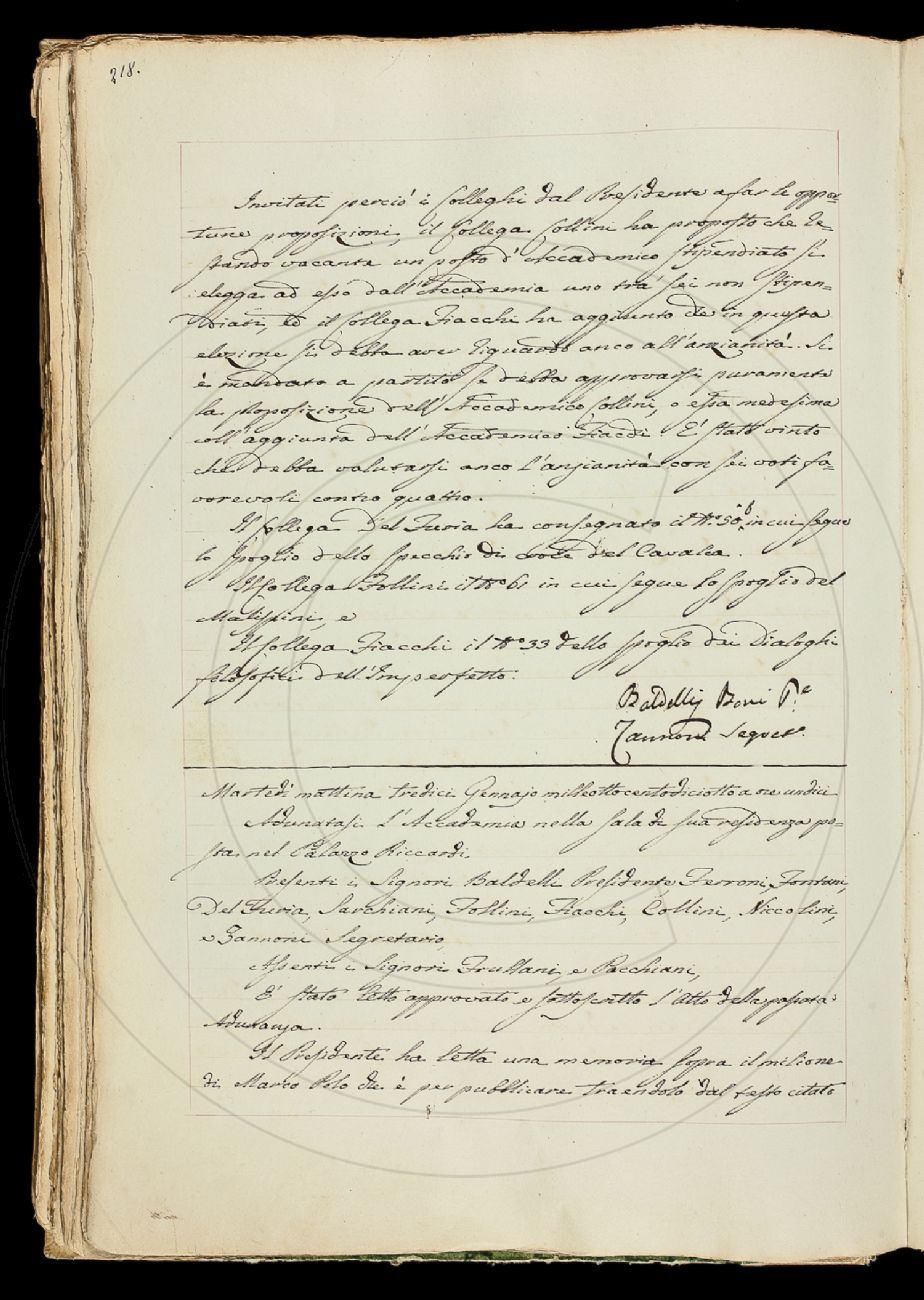 218.
Invitati perciò i Colleghi dal Presidente a far le oppor-
tune proposizioni, il Collega Collini ha proposto che re-
stando vacante un posto d'Accademico stipendiato si
elegga ad esso dall'Accademia uno tra' sei non stipen-
diati, ed il Collega Fiacchi ha aggiunto che in questa
elezione si debba aver riguardo anco all'anzianità. Si
è mandato a partito se debba approvarsi puramente
la proposizione dell'Accademico Collini, o essa medesima
coll'aggiunta dell'Accademico Fiacchi. E' stato vinto
che debba valutarsi anco l'anzianità con sei voti fa-
vorevoli contro quattro.
Il Collega Del Furia ha consegnato il N.o 50, in cui segue
lo spoglio dello specchio di croce del Cavalca.
Il Collega Follini il N.o 61 in cui segue lo spoglio del
Malispini, e
Il Collega Fiacchi il N.o 33 dello spoglio dei Dialoghi
filosofici dell'Imperfetto.
Baldelli Boni P.e
Zannoni Segret.
Martedì mattina tredici Gennajo milleottocentodiciotto a ore undici
Adunatasi l'Accademia nella sala di sua residenza po-
sta nel Palazzo Riccardi.
Presenti i Signori Baldelli Presidente, Ferroni, Fontani,
Del Furia, Sarchiani, Follini, Fiacchi, Collini, Niccolini,
e Zannoni Segretario,
Assenti i Signori Frullani, e Pacchiani,
E' stato letto approvato e sottoscritto l'Atto della passata
Adunanza.
Il Presidente ha letta una memoria sopra il milione
di Marco Polo che è per pubblicare traendolo dal testo citato